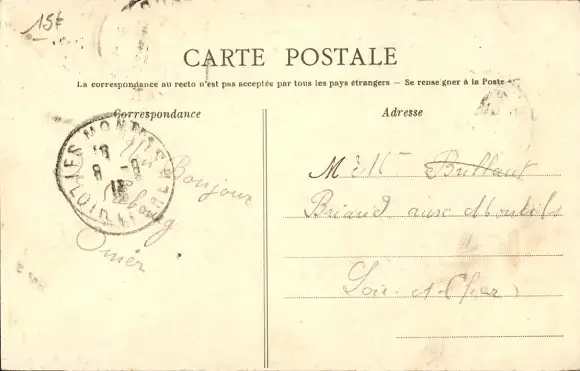 15f
CARTE POSTALE
La correspondance au recto n'est pas acceptée par tous les pays étrangers — Se renseigner à la Poste
Correspondance
Adresse
LES MONTILS
LOIR-ET-CHER
Un Bonjour
Omer
Mlle Brillant
Briand aux Montils
Loir-et-Cher